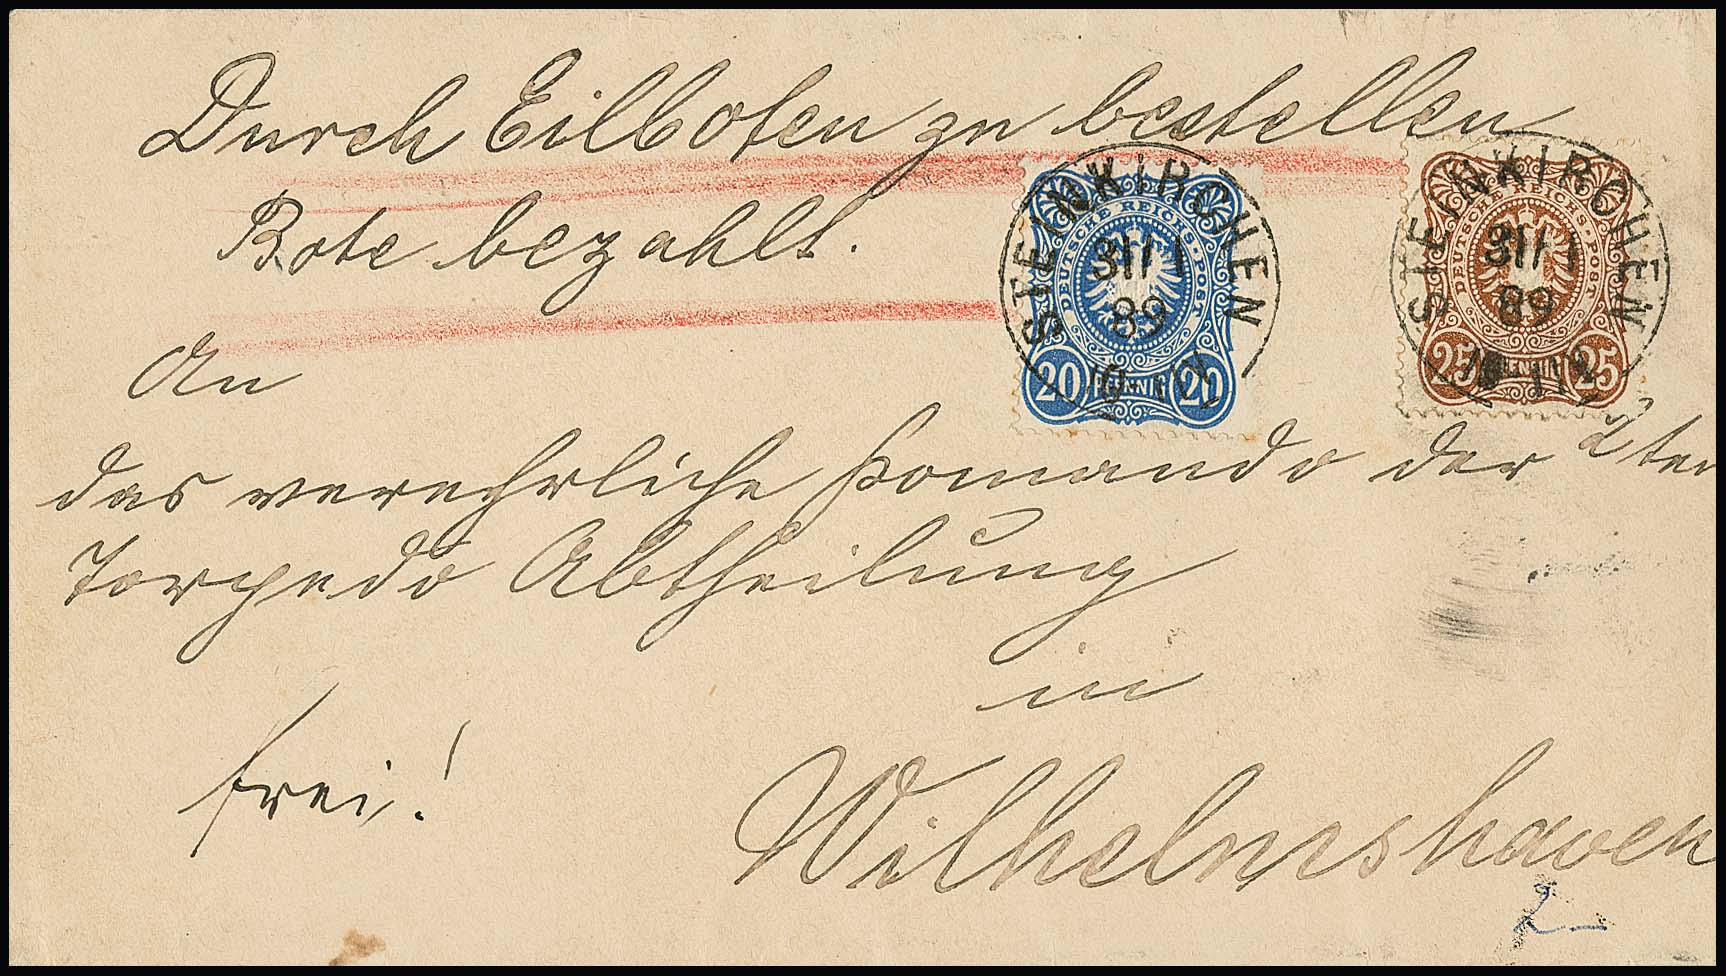 Durch Eilboten zu bestellen
Bote bezahlt.
STEINKIRCHEN
31/1
89
DEUTSCHE REICHS-POST
20 PFENNIG 20
STEINKIRCHEN
31/1
89
DEUTSCHE REICHS-POST
25 PFENNIG 25
An
das verehrliche Komando der 2ten
Torpedo Abtheilung
in
frei!
Wilhelmshaven
2